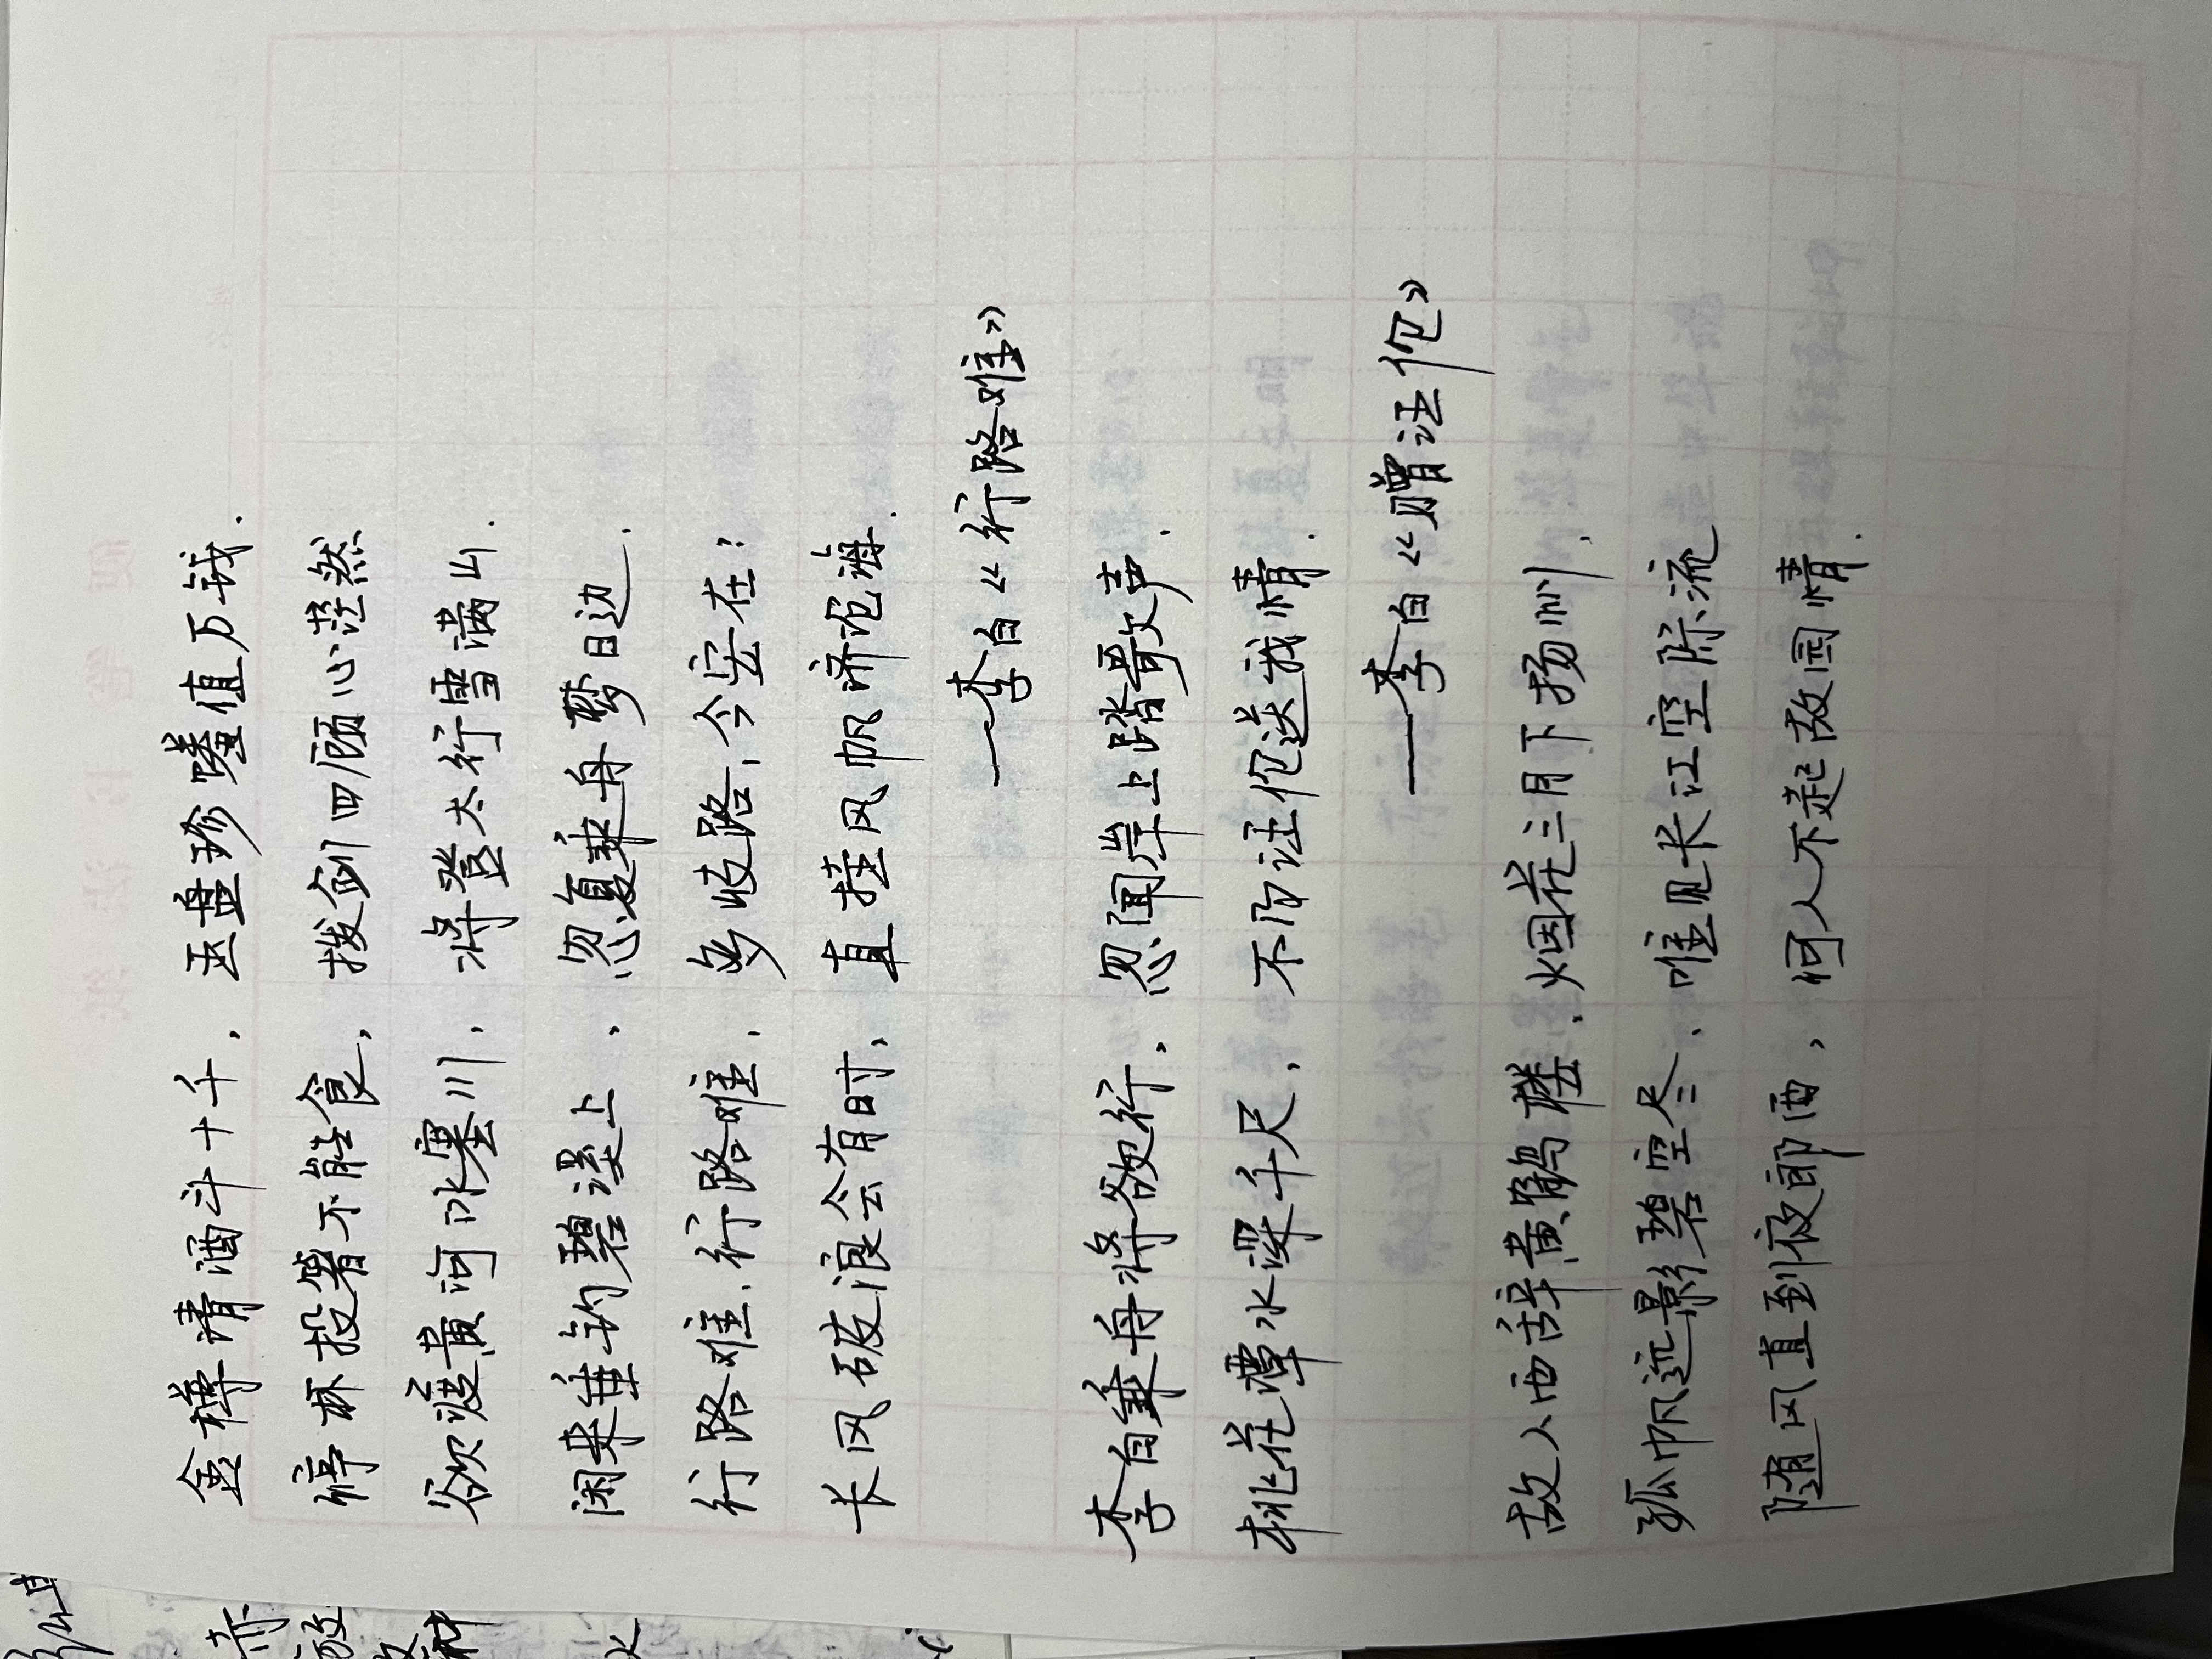 金樽清酒斗十千，玉盘珍馐值万钱.
停杯投箸不能食，拔剑四顾心茫然
欲渡黄河冰塞川，将登太行雪满山.
闲来垂钓碧溪上，忽复乘舟梦日边.
行路难，行路难，多歧路，今安在？
长风破浪会有时，直挂风帆济沧海.
——李白《行路难》
李白乘舟将欲行，忽闻岸上踏歌声.
桃花潭水深千尺，不及汪伦送我情.
——李白《赠汪伦》
故人西辞黄鹤楼，烟花三月下扬州，
孤帆远影碧空尽，唯见长江空际流
随风直到夜郎西，何人不起故园情.